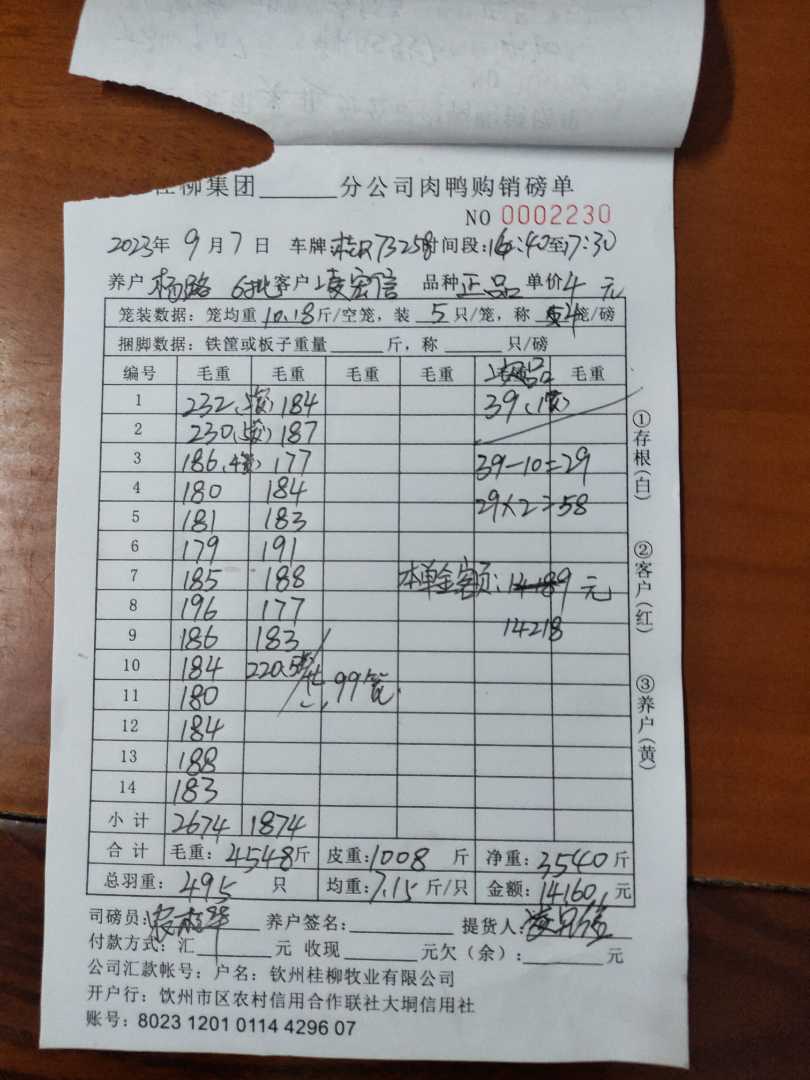 桂柳集团______分公司肉鸭购销磅单
NO 0002230
2023年 9月7日 车牌:桂R73258时间段:16:40至17:30
养户 杨路 6批 客户 凌宏信 品种 正品 单价 4 元
笼装数据:笼均重10.18斤/空笼,装 5 只/笼,称 4笼/磅
捆脚数据:铁筐或板子重量______斤,称______只/磅
编号 毛重 毛重 毛重 毛重 次品 毛重
1 232(5笼) 184 39(1笼)
2 230(5笼) 187
3 186(4笼) 177 39-10=29
4 180 184 29×2=58
5 181 183
6 179 191
7 185 188 本单金额:14189元
8 196 177
9 186 183 14218
10 184 220.5笼
11 180 共99笼
12 184
13 188
14 183
小计 2674 1874
合计 毛重:4548斤 皮重:1008 斤 净重:3540斤
总羽重:495 只 均重:7.15斤/只 金额:14160元
司磅员: 养户签名: 提货人:
付款方式:汇______元 收现______元欠(余):______元
公司汇款帐号:户名:钦州桂柳牧业有限公司
开户行:钦州市区农村信用合作联社大垌信用社
账号:8023 1201 0114 4296 07
①存根(白)
②客户(红)
③养户(黄)